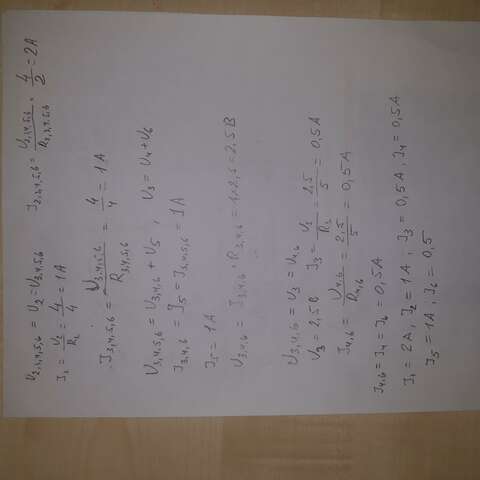 U2,3,4,5,6 = U2 = U3,4,5,6   I2,3,4,5,6 = U2,3,4,5,6 / R2,3,4,5,6 = 4/2 = 2A
I2 = U2/R2 = 4/4 = 1A
I3,4,5,6 = U3,4,5,6 / R3,4,5,6 = 4/4 = 1A
U3,4,5,6 = U3,4,6 + U5, U3 = U4+U6
I3,4,6 = I5 = I3,4,5,6 = 1A
I5 = 1A
U3,4,6 = I3,4,6 · R3,4,6 = 1×2,5 = 2,5B
U3,4,6 = U3 = U4,6
U3 = 2,5B   I3 = U3/R3 = 2,5/5 = 0,5A
I4,6 = U4,6 / R4,6 = 2,5/5 = 0,5A
I4,6 = I4 = I6 = 0,5A
I1 = 2A; I2 = 1A; I3 = 0,5A; I4 = 0,5A
I5 = 1A; I6 = 0,5